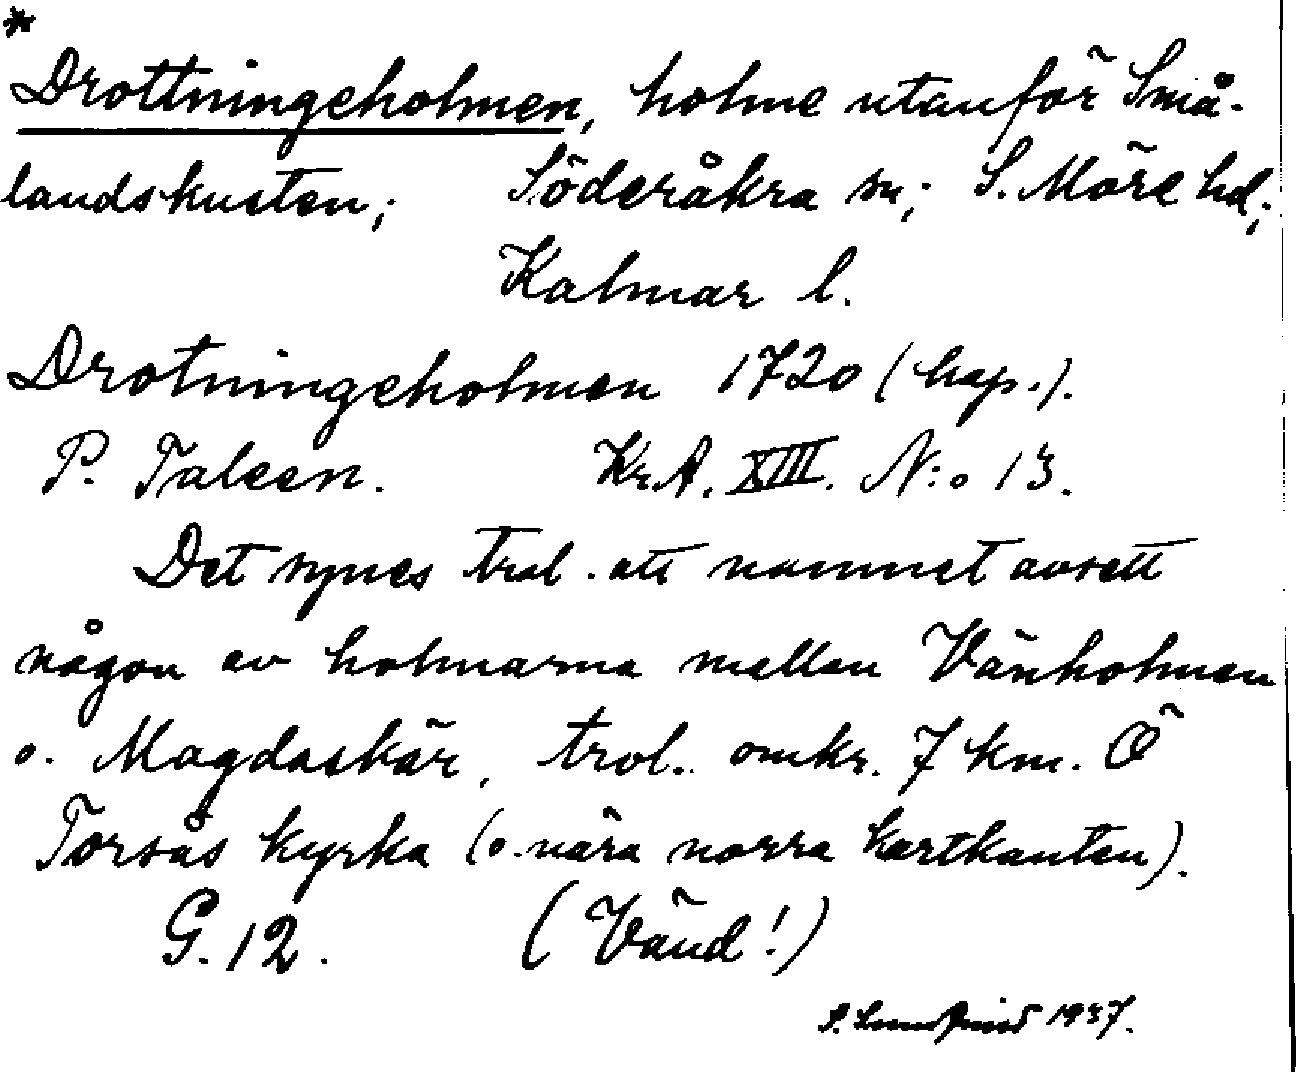 *
Drottningeholmen, holme utanför Små-
landskusten; Söderåkra sn; S. Möre hd;
Kalmar l.
Drotningeholmen 1720 (kap.).
P. Taleen. Kr.A. XIII. N:o 13.
Det synes trol. att namnet avsett
någon av holmarna mellan Vänholmen
o. Magdaskär, trol. omkr. 7 km. Ö
Torsås kyrka (o. nära norra kartkanten).
G. 12. (Vänd!)
S. 1937.